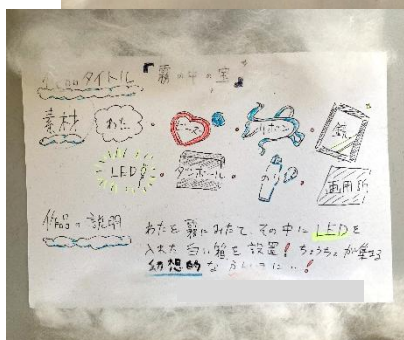 作品タイトル 『霧の中の宝』
素材 わた・ビーズ・リボン・鏡
LED・ダンボール・のり・画用紙
作品の説明 わたを霧にみたて、その中にLEDを
入れた白い箱を設置!ちょうちょが集まる
幻想的な